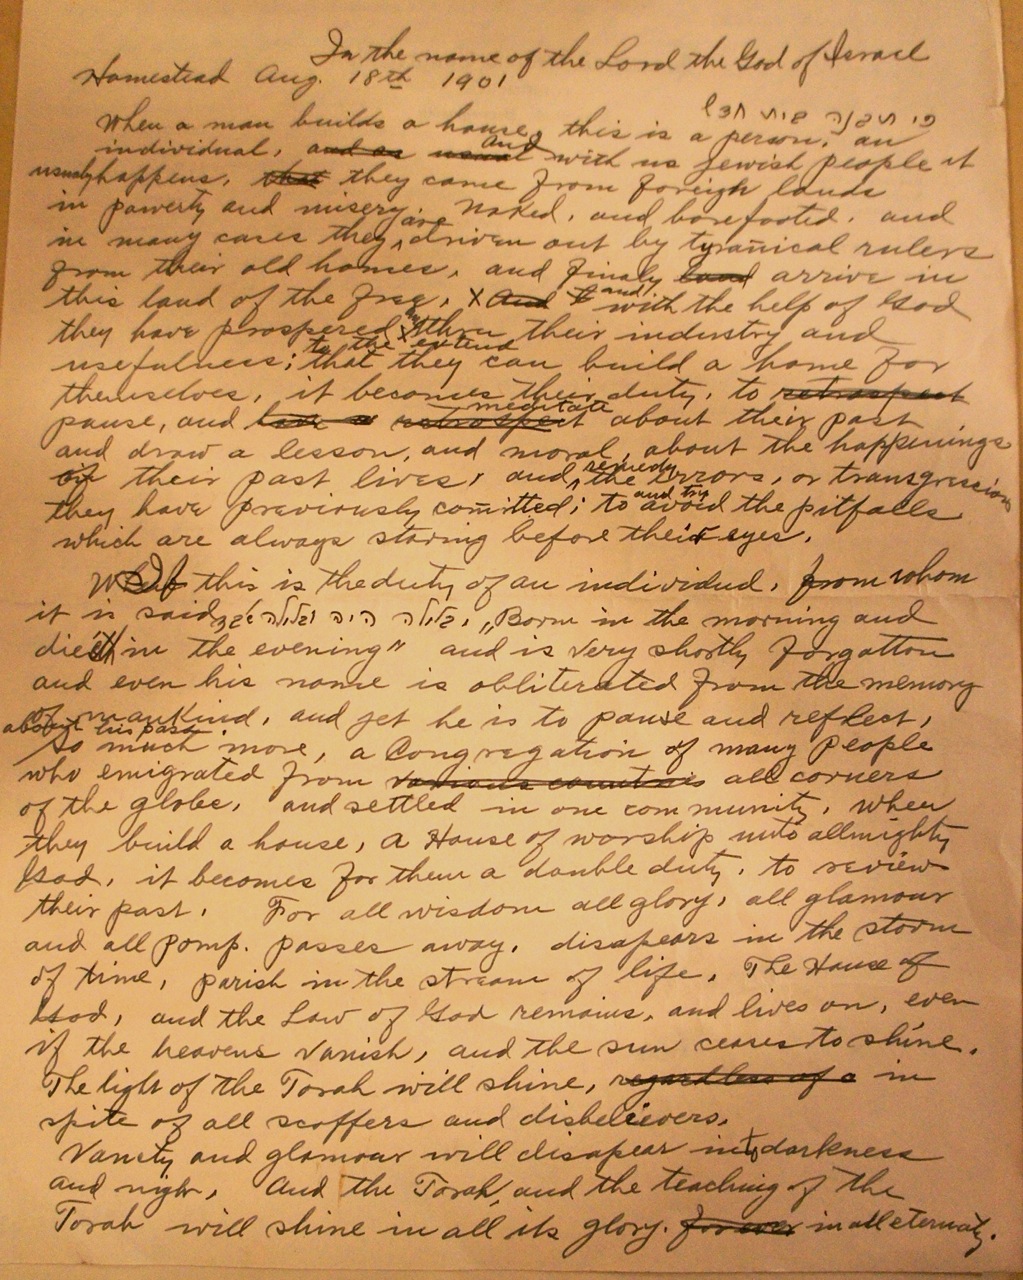 In the name of the Lord the God of Israel
Homestead Aug. 18th 1901
כי תבנה בית חדש
When a man builds a house, this is a person, an
individual, and as usual and with us Jewish people it
usualy happens, that they came from foreign lands
in powerty and misery, naked, and borefooted. and
in many cases they are driven out by tyranical rulers
from their old homes, and finaly land arrive in
this land of the free, X and and with the help of God
they have prospered X thru their industry and
usefulness; to the extend that they can build a home for
themselves, it becomes their duty, to retrospect
pause, and have a retrospect meditate about their past
and draw a lesson, and moral, about the happenings
of their past lives, and, remedy the errors, or transgressions
they have previously comitted; and try to avoid the pitfalls
which are always staring before their eyes.
this is the duty of an individud, from whom
it is said, "Born in the morning and
dies in the evening" and is very shortly forgotton
and even his name is obliterated from the memory
of mankind, and yet he is to pause and reflect,
about his past
So much more, a Congregation of many people
who emigrated from various countries all corners
of the globe, and settled in one community, when
they build a house, a House of worship unto allmighty
God, it becomes for them a double duty, to review
their past. For all wisdom all glory, all glamour
and all pomp. passes away, disapears in the storm
of time, parish in the stream of life, The House of
God, and the Law of God remains, and lives on, even
if the heavens vanish, and the sun ceases to shine.
The light of the Torah will shine, regardless of a in
spite of all scoffers and disbelievers.
Vanety and glamour will disapear into darkness
and nigh, And the Torah, and the teaching of the
Torah will shine in all its glory. for ever in all eternaty.